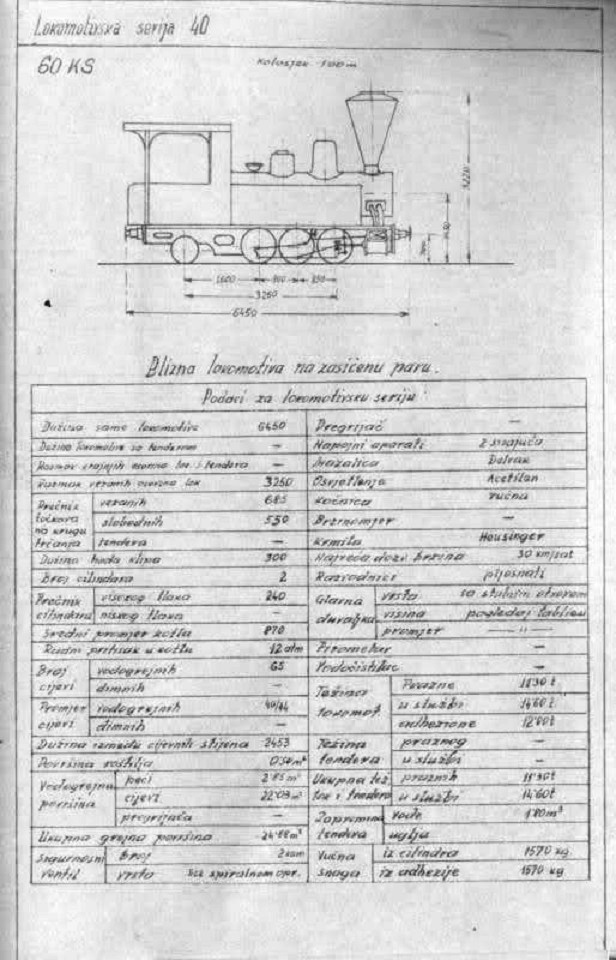 Lokomotivska serija 40
60 KS
3220
1600 800 850
3260
6450
Blizna lokomotiva na zasićenu paru.
Podaci za lokomotivsku seriju:
Dužina same lokomotive 6450
Dužina lokomotive sa tenderom —
Razmak krajnjih osovina lok. i tendera —
Razmak vezanih osovina lok 3260
Prečnik točkova na krugu
vezanih 685
slobodnih 530
tendera —
Dužina hoda klipa 300
Broj cilindara 2
Prečnik cilindara
visokog tlaka 240
niskog tlaka —
Srednji promjer kotla 870
Radni pritisak u kotlu 12 atm
Broj cijevi
vodogrejnih 65
dimnih —
Promjer cijevi
vodogrejnih 40/44
dimnih —
Dužina između cijevnih stijena 2453
Površina roštilja
Vodogrejna površina
peći
cijevi
pregrijača —
Ukupna grejna površina
Sigurnosni ventil
broj 2 kom
vrsta sa spiralnom opr.
Pregrijač —
Napojni aparati 2 sisajuća
Mazalica
Osvjetlenje Acetilan
Kočnica ručna
Brzinomjer —
Krmila Heusinger
Najveća dozv brzina 30 km/sat
Razvodnici pljosnati
Glavna duvaljka
vrsta sa stalnim otvorom
visina pogledaj tablicu
promjer — " —
Pirometar —
Vodočistilac —
Težina lokomot.
Prazne 11'30 t
u službi 14'60 t
adhezione 12'00 t
Težina tendera
praznog —
u službi —
Ukupna tež. lok i tendera
praznih 11'30 t
u službi 14'60 t
Zapremina tendera
vode 1'80 m³
uglja
Vučna snaga
iz cilindra 1570 kg
iz adhezije 1570 kg